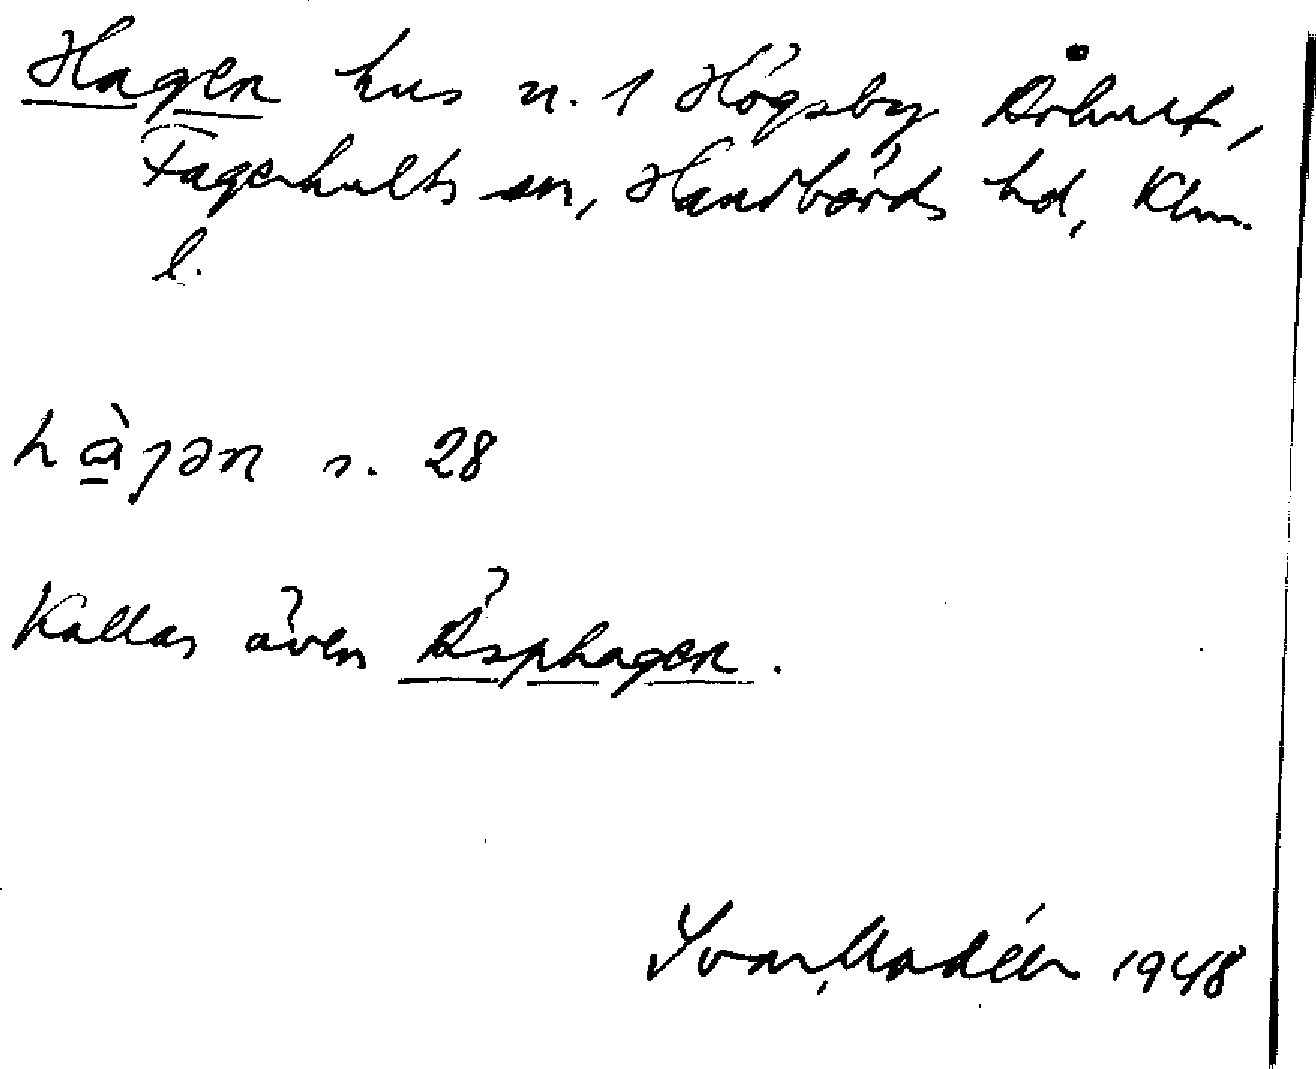 Hagen hus n. 1 Högsby Århult,
Fagerhults sn, Handbörds hd, Klm.
l.
hàgən s. 28
Kallas även Äsphagen.
Ivar Modéer 1948